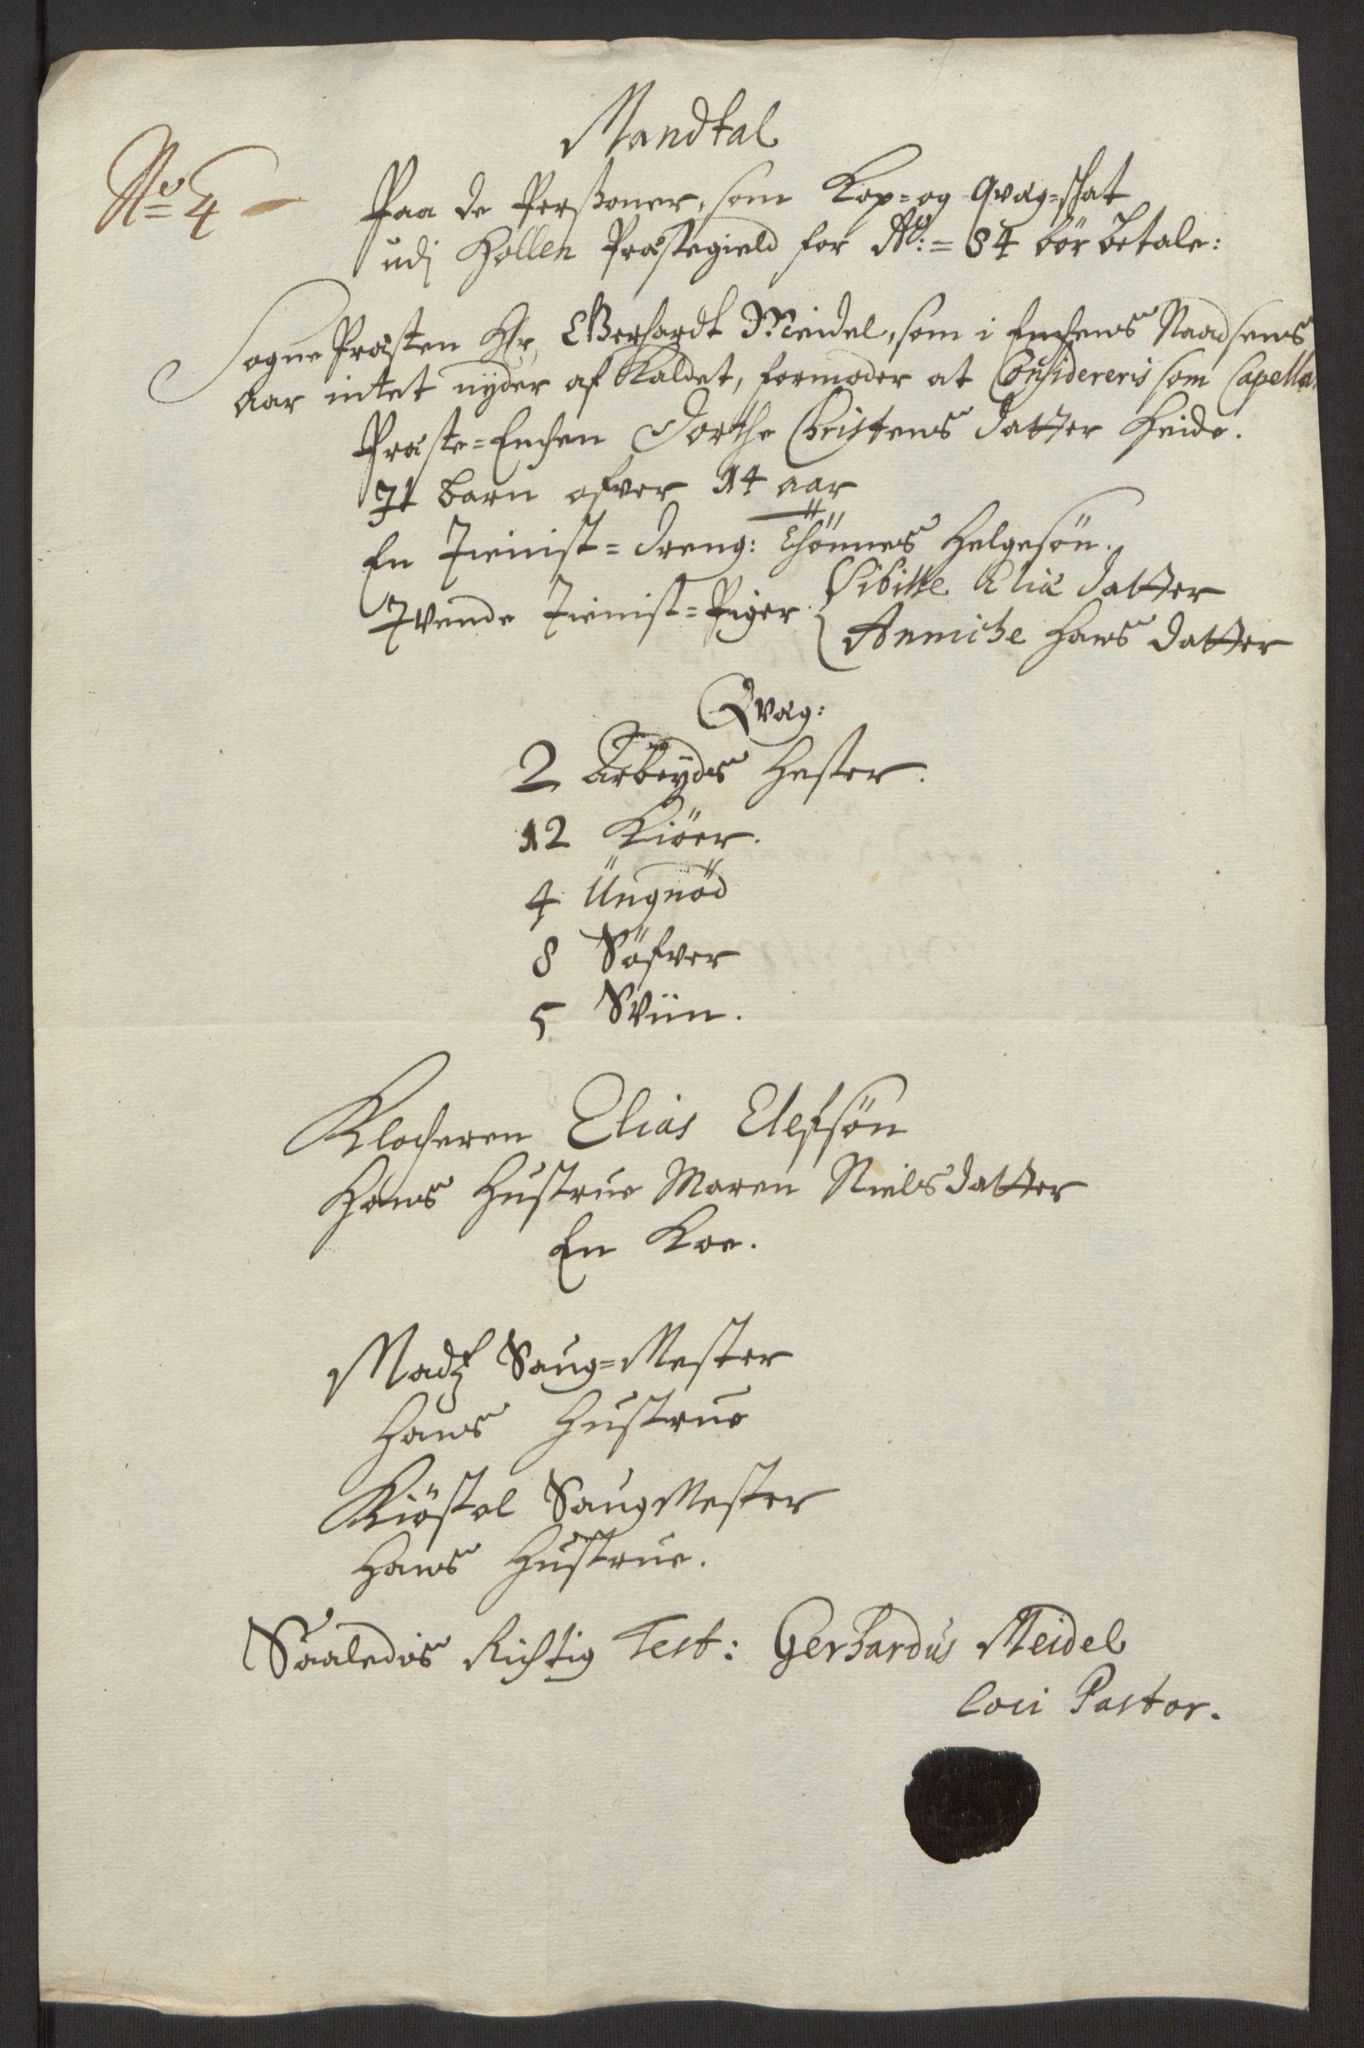 Mandtal
No 4
Paa de Persohner, som Kop= og Qvæg=skat
udj Hollen Præstegield for Ao:= 84 bör betale:
Sogne Præsten Hr. Gerhardt Meidel, som i Enchens Naadsens
Aar intet nyder af Kaldet, formoder at Considereris som Capella
Præste=Enchen Dorthe Christens datter Heide.
It barn ofver 14 aar
En Tienist=dreng: Thönnes Helgesön.
Tvende Tienist=Piger Sibille Eliæ datter
Anniche Hans datter
Qvæg:
2 Arbeyds Hester.
12 Kiöer.
4 Ungnöd
8 Söfver
5 Sviin.
Klocheren Elias Elefsön
Hans Hustrue Maren Nielsdatter
En Koe.
Madz Saug=Mester
Hans Hustrue
Kiöstol SaugMester
Hans Hustrue.
Saaledis Richtig Test: Gerhardus Meidel
loci Pastor.